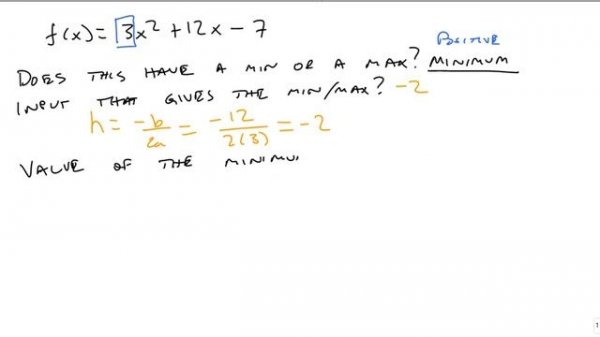 f(x) = 3x² + 12x - 7
POSITIVE
DOES THIS HAVE A MIN OR A MAX? MINIMUM
INPUT THAT GIVES THE MIN/MAX? -2
h = -b/2a = -12/2(3) = -2
VALUE OF THE MINIMU
1